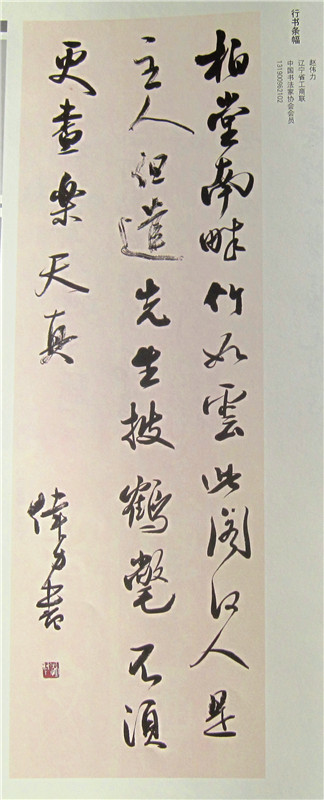 行书条幅
赵伟力
辽宁省工商联
中国书法家协会会员
13190962102
柏堂南畔竹如雲此閣何人是
主人但遣先生披鶴氅不須
更畫樂天真
偉力書